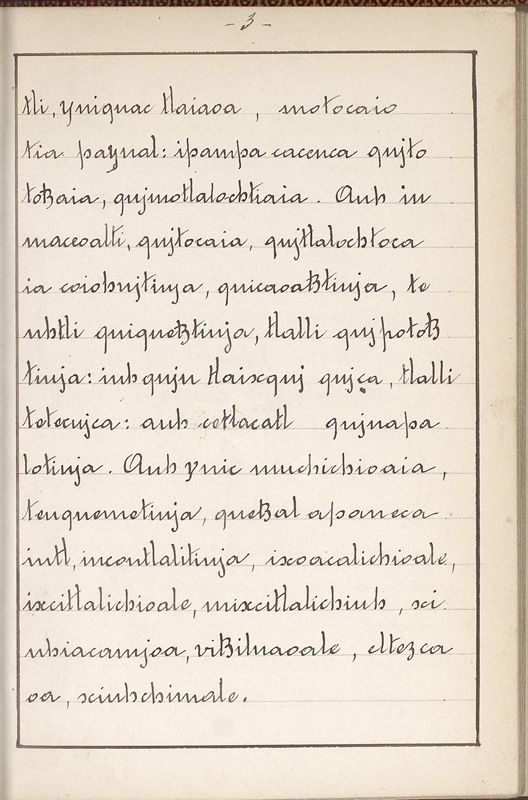 - 3 -
tli, yniquac tlaiaoa, motocaio
tia paynal: ipampa cacenca qujto
totzaia, qujmotlalochtiaia. Auh in
maceoalti, qujtocaia, qujtlalochtoca
ia coiohujtinja, quicaoatztinja, te
uhtli quiquetztinja, tlalli qujpototz
tinja: iuhqujn tlaixquj qujça, tlalli
tetecujca: auh cetlacatl qujnapa
lotinja. Auh ynic muchichioaia,
tenquemetinja, quetzal apaneca
iutl, incontlalitinja, ixoacalichioale,
ixcitlalichioale, mixcitlalichiuh, xi
uhiacamjoa, vitzilnaoale, eltezca
oa, xiuhchimale.